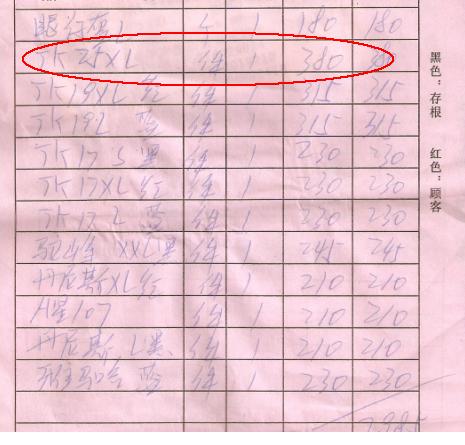 眼行灰L 个 1 180 180
JK 25XL 件 1 380
JK 19XL 红 件 1 315 315
JK 19L 蓝 件 1 315 315
JK 17 S 黑 件 1 230 230
JK 17XL 红 件 1 230 230
JK 17 L 蓝 件 1 230 230
驼峰 XXL黑 件 1 245 245
丹尼斯XL红 件 1 210 210
A星107 件 1 210 210
丹尼斯 L黑 件 1 210 210
蓝 件 1 230 230
2985
黑色：存根 红色：顾客